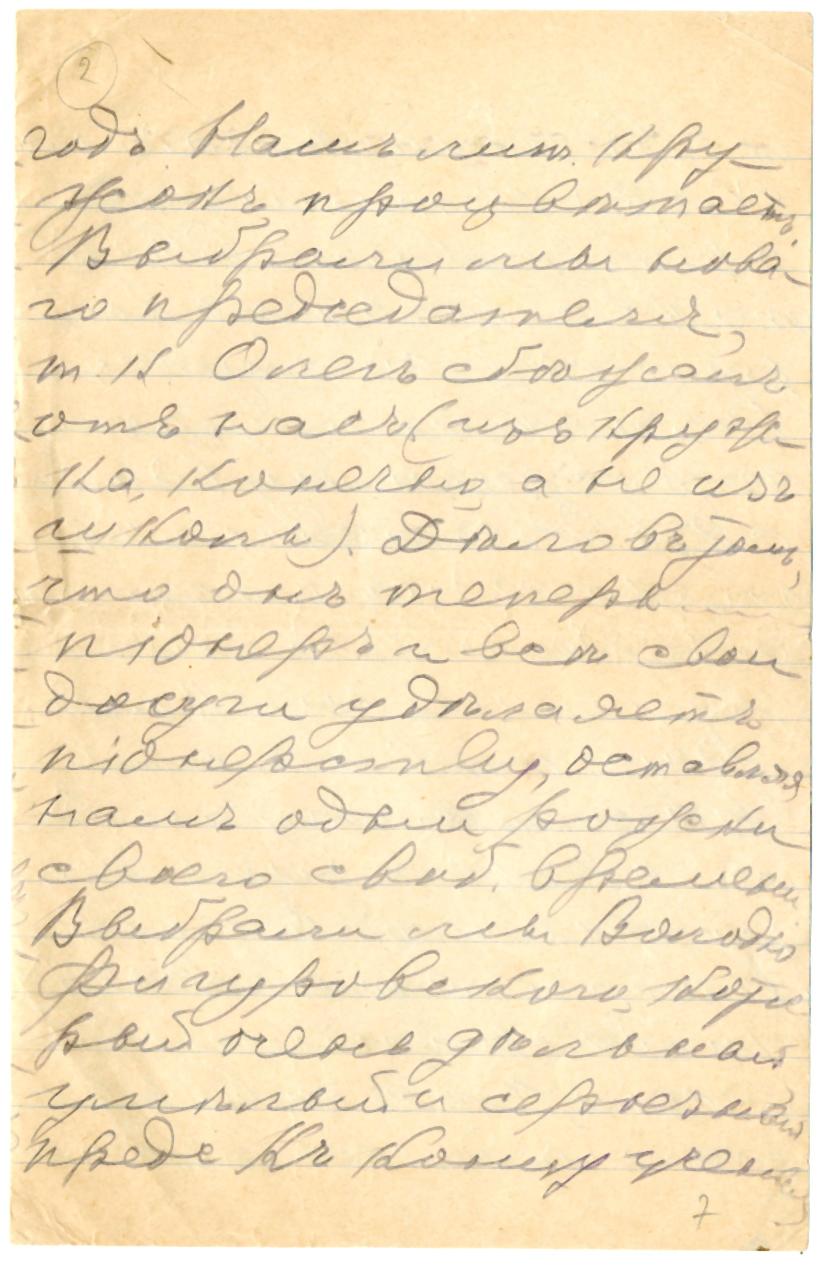 2
годъ Нашъ лит. кру-
жокъ процвѣтаетъ.
Выбрали мы нова-
го председателя,
т к Олегъ сбѣжалъ
отъ насъ (изъ круж-
ка, конечно, а не изъ
школы). Дѣло въ томъ,
что онъ теперь
піонеръ и всѣ свои
досуги удѣляетъ
піонерству, оставляя
намъ одни рожки
своего своб. времени
Выбрали мы Володю
Фигуровского, кото
рый очень дѣльный
умный и серьезный
предс Къ концу
7